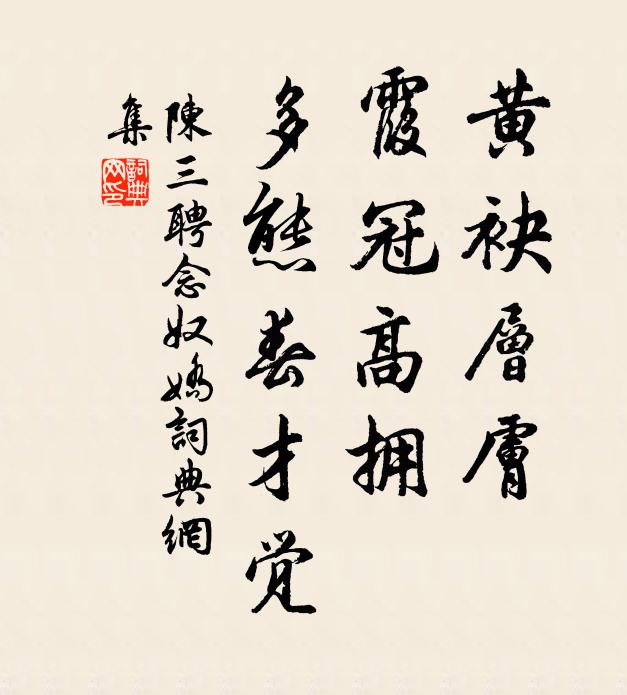 黄袂層膚
霞冠高拥
多態春才觉
陳三聘念奴嬌詞典網
集
詞典網印